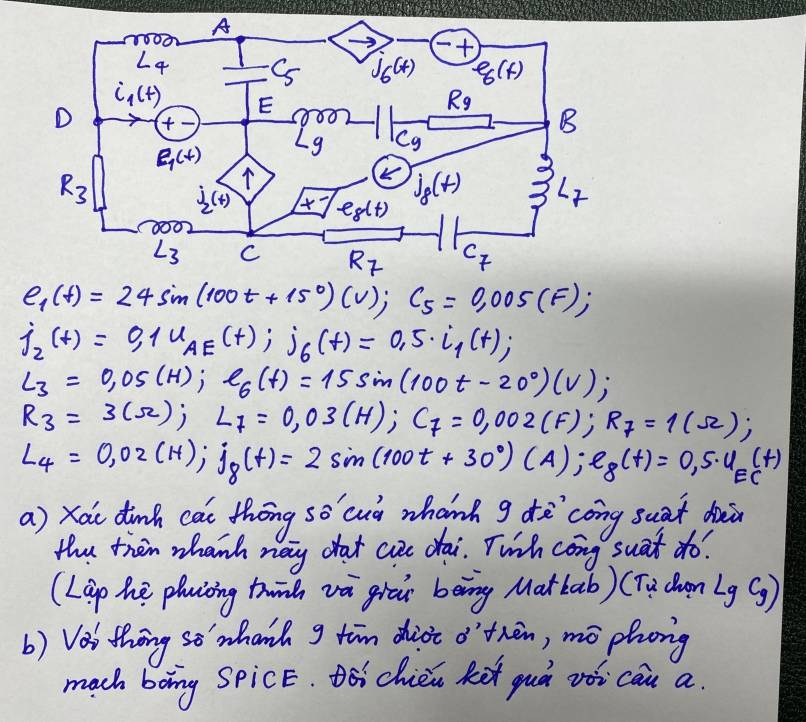 A
L4
C5
j6(t)
- +
e6(t)
i1(t)
D
+ -
e1(t)
E
L9
C9
R9
B
R3
j2(t)
+ -
e8(t)
j8(t)
L7
L3
C
R7
C7
e1(t) = 24 sin(100t + 15°) (V); C5 = 0,005 (F);
j2(t) = 0,1 uAE(t); j6(t) = 0,5 · i1(t);
L3 = 0,05 (H); e6(t) = 15 sin(100t - 20°) (V);
R3 = 3(Ω); L7 = 0,03 (H); C7 = 0,002 (F); R7 = 1 (Ω);
L4 = 0,02 (H); j8(t) = 2 sin(100t + 30°) (A); e8(t) = 0,5·uEC(t)
a) Xác định các thông số của nhánh 9 để công suất tiêu
thụ trên nhánh này đạt cực đại. Tính công suất đó.
(Lập hệ phương trình và giải bằng Matlab) (Tự chọn L9 C9)
b) Với thông số nhánh 9 tìm được ở trên, mô phỏng
mạch bằng SPiCE. Đối chiếu kết quả với câu a.